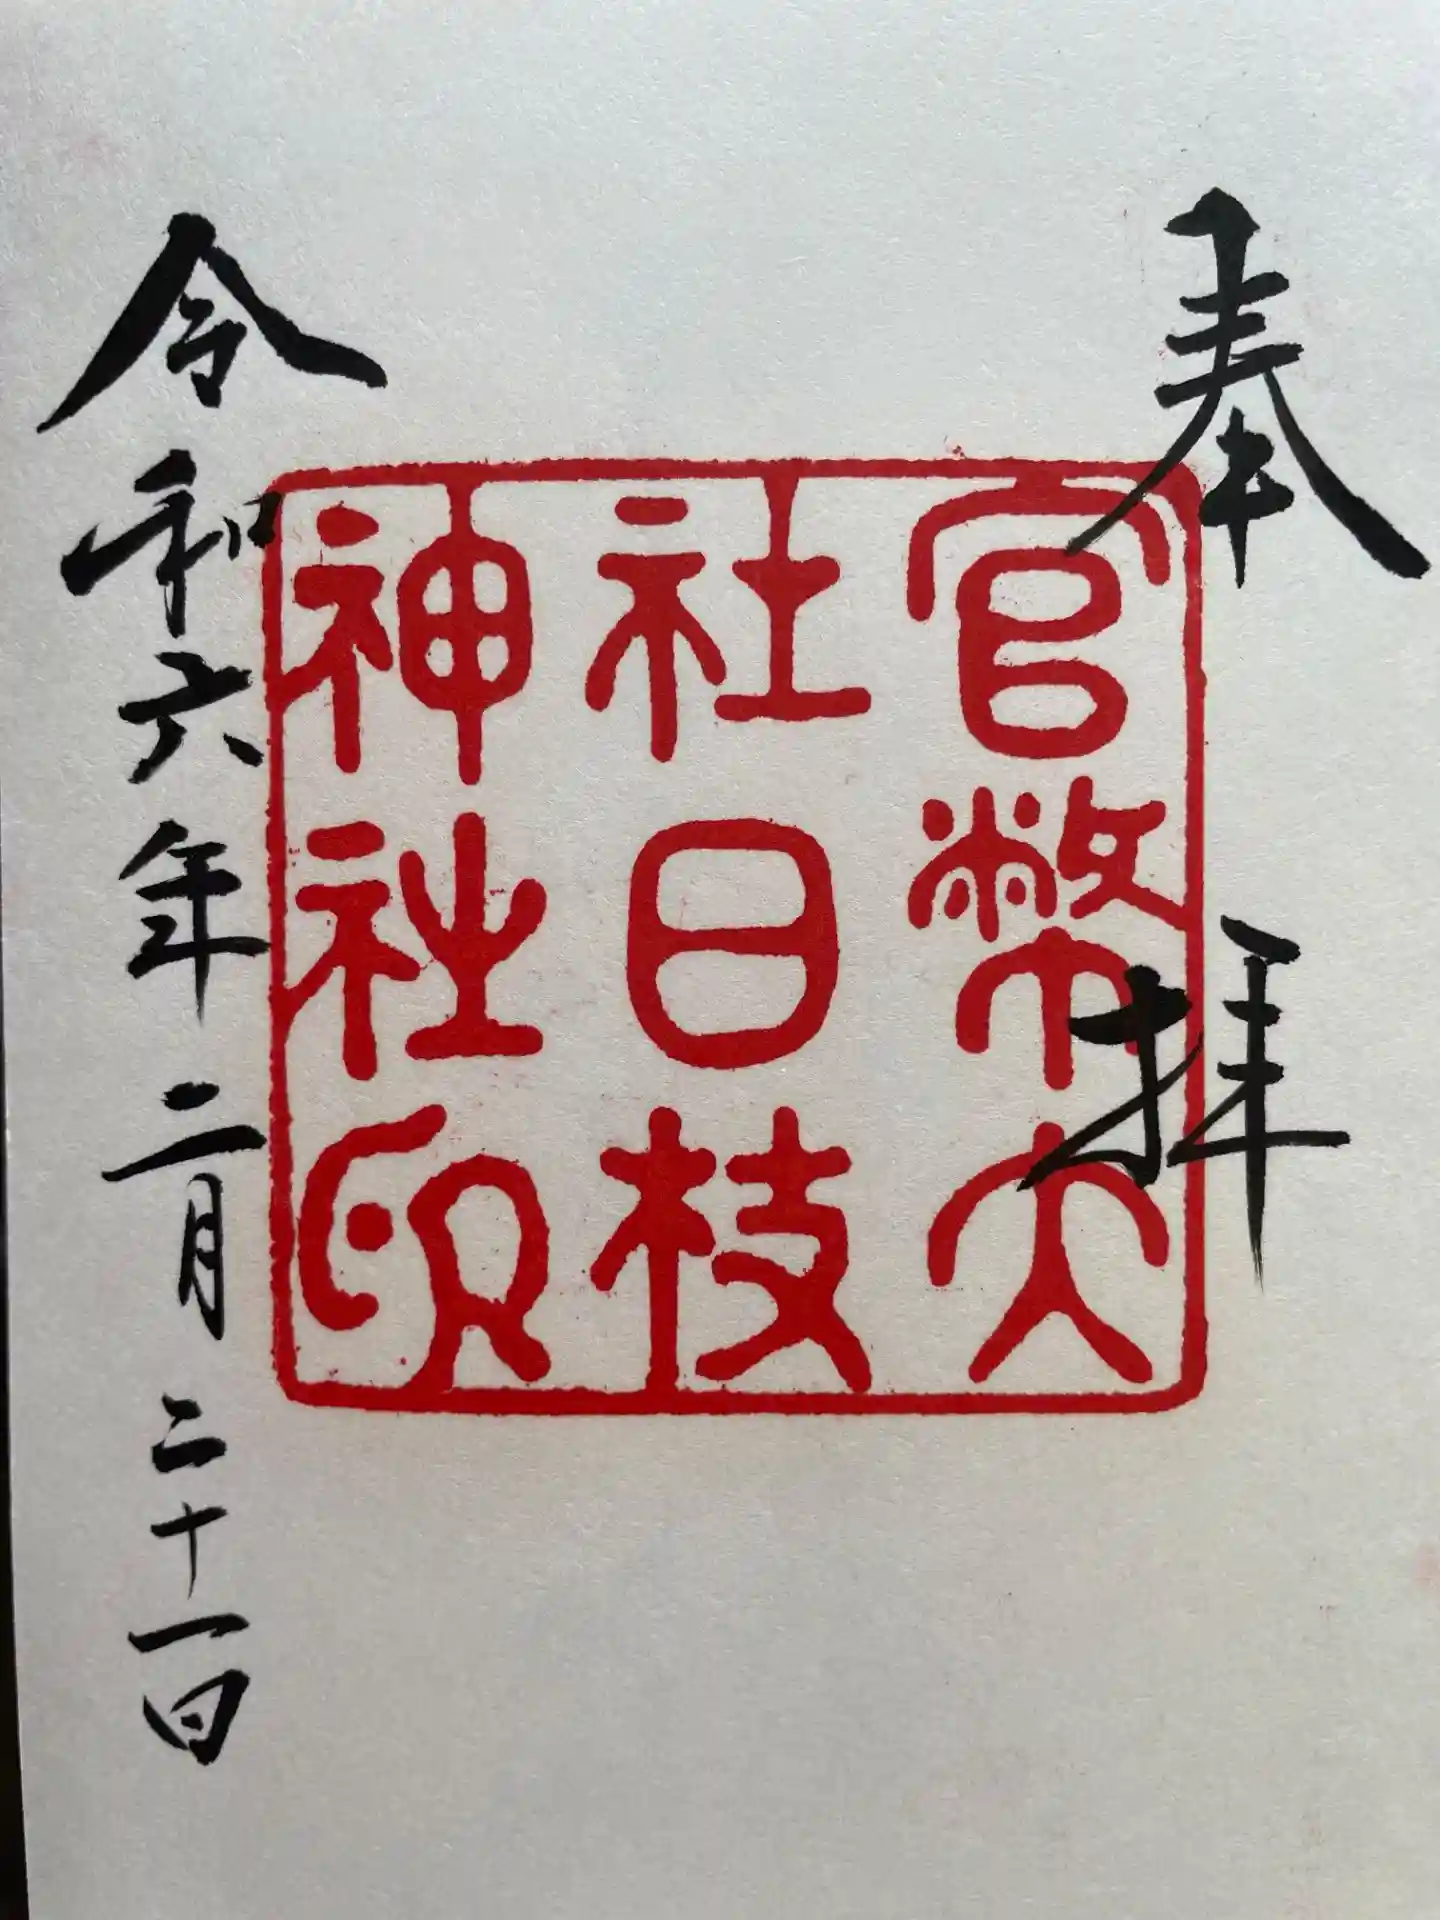 奉拝
官幣大
社日枝
神社印
令和六年二月二十一日